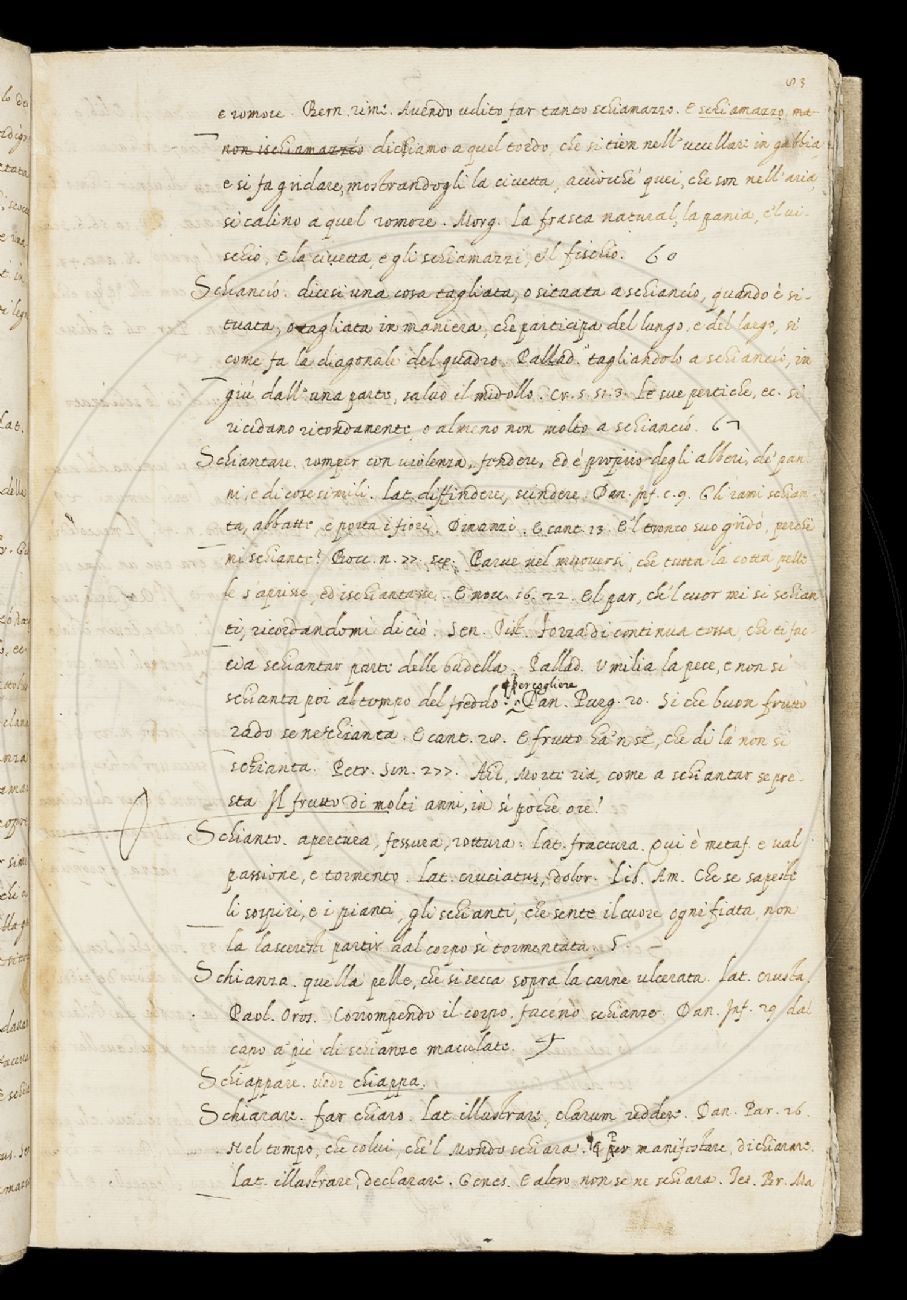 83
e romore. Bern. rim. Avendo udito far tanto schiamazzo. E schiamazzo, ma-
non ischiamazzío dichiamo a quel tordo, che si tien nell'uccellare in gabbia
e si fa gridare, mostrandogli la civetta, acciocché quei, che son nell'aria,
si calino a quel romore. Morg. La frasca natural, la pania, e'l vi-
schio, E la civetta, e gli schiamazzi, e'l fischio. 60
Schiancío. dicesi una cosa tagliata, o situata a schiancío, quando è si-
tuata, o tagliata in maniera, che participa del lungo, e del largo, sí
come fa la diagonale del quadro. Pallad. tagliandolo a schiancío, in
giú dall'una parte, salvo il midollo. Cr. 5. 51. 3. Le sue pertiche, ec. si
ricidano ritondamente, o almeno non molto a schiancío.
Schiantare. romper con violenza, fendere, ed è propio degli alberi, de' pan-
ni, e di cose simili. Lat. diffindere, scindere. Dan. Inf. c. 9. Gli rami schian-
ta, abbatte, e porta i fiori. Dinanzi. E cant. 13. E'l tronco suo gridò, perché
mi schiante? Bocc. n. 77. Parve nel muoversi, che tutta la cotta pelle
le s'aprisse, ed ischiantasse. E nov. 16. 22. El par, che'l cuor mi si schian-
ti, ricordandomi di ciò. Sen. Pist. Forza di continua tossa, che ti fac-
cia schiantar parte delle budella. Pallad. Umilia la pece, e non si
schianta poi al tempo del freddo. ¶ Per cogliere Dan. Purg. 20. Si che buon frutto
rado se ne schianta. E cant. 28. E frutto ha'n se, che di là non si
schianta. Petr. Son. 277. Ahi, Morte ria, come a schiantar se pre-
sta Il frutto di molti anni, in sì poche ore!
Schianto. apertura, fessura, rottura. Lat. fractura. Qui è metaf. e val
passione, e tormento. Lat. cruciatus, dolor. Lib. Am. Che se sapeste
li sospiri, e i pianti, gli schianti, che sente il cuore ogni fiata, non
la lasceresti partir dal corpo sì tormentata. 5
Schianza. quella pelle, che si secca sopra la carne ulcerata. Lat. crusta.
Paol. Oros. Corrompendo il corpo, faceno schianze. Dan. Inf. 29 dal
capo a' piè di schianze maculate.
Schiappare. vedi chiappa.
Schiarare. far chiaro. Lat. illustrare, clarum reddere. Dan. Par. 26.
Nel tempo, che colui, che'l Mondo schiara. ¶ per manifestare, dichiarare.
Lat. illustrare, declarare. Genes. E altro non se ne schiara. Tes. Br. Ma